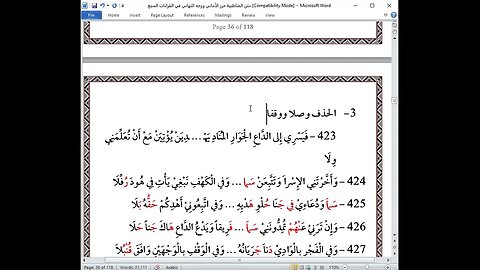 متن الشاطبية حرز الأماني ووجه التهاني في القراءات السبع [Compatibility Mode] - Microsoft Word
File Home Insert Page Layout References Mailings Review View
Page 36 of 118
3- الحذف وصلا ووقفا
423- فَيَسْرِي إِلَى الدَّاعِ الْجَوَارِ الْمُنَادِ يَهْـ ... ـدِيَنْ يُؤْتِيَنْ مَعْ أَنْ تُعَلِّمَنِي
وِلَا
424- وَأَخَّرْتَنِي الْإِسْرَا وَتَتَّبِعَنْ سَمَا ... وَفِي الْكَهْفِ نَبْغِي يَأْتِ فِي هُودَ رُفِّلَا
425- سَمَا وَدُعَاءِي فِي جَنَا حُلْوِ هَدْيِهِ ... وَفِي اتَّبِعُونِي أَهْدِكُمْ حَقُّهُ بَلَا
426- وَإِنْ تَرَنِي عَنْهُمْ تُمِدُّونَنِي سَمَا ... فَرِيقًا وَيَدْعُ الدَّاعِ هَاكَ جَنًا حَلَا
427- وَفِي الْفَجْرِ بِالْوَادِي دَنَا جَرَيَانُهُ ... وَفِي الْوَقْفِ بِالْوَجْهَيْنِ وَافَقَ قُنْبُلَا
Page: 36 of 118 Words: 21,111 Arabic 110%